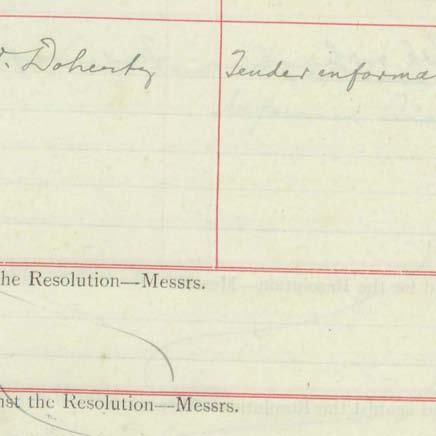 . Doherty Tender informa
he Resolution—Messrs.
nst the Resolution—Messrs.